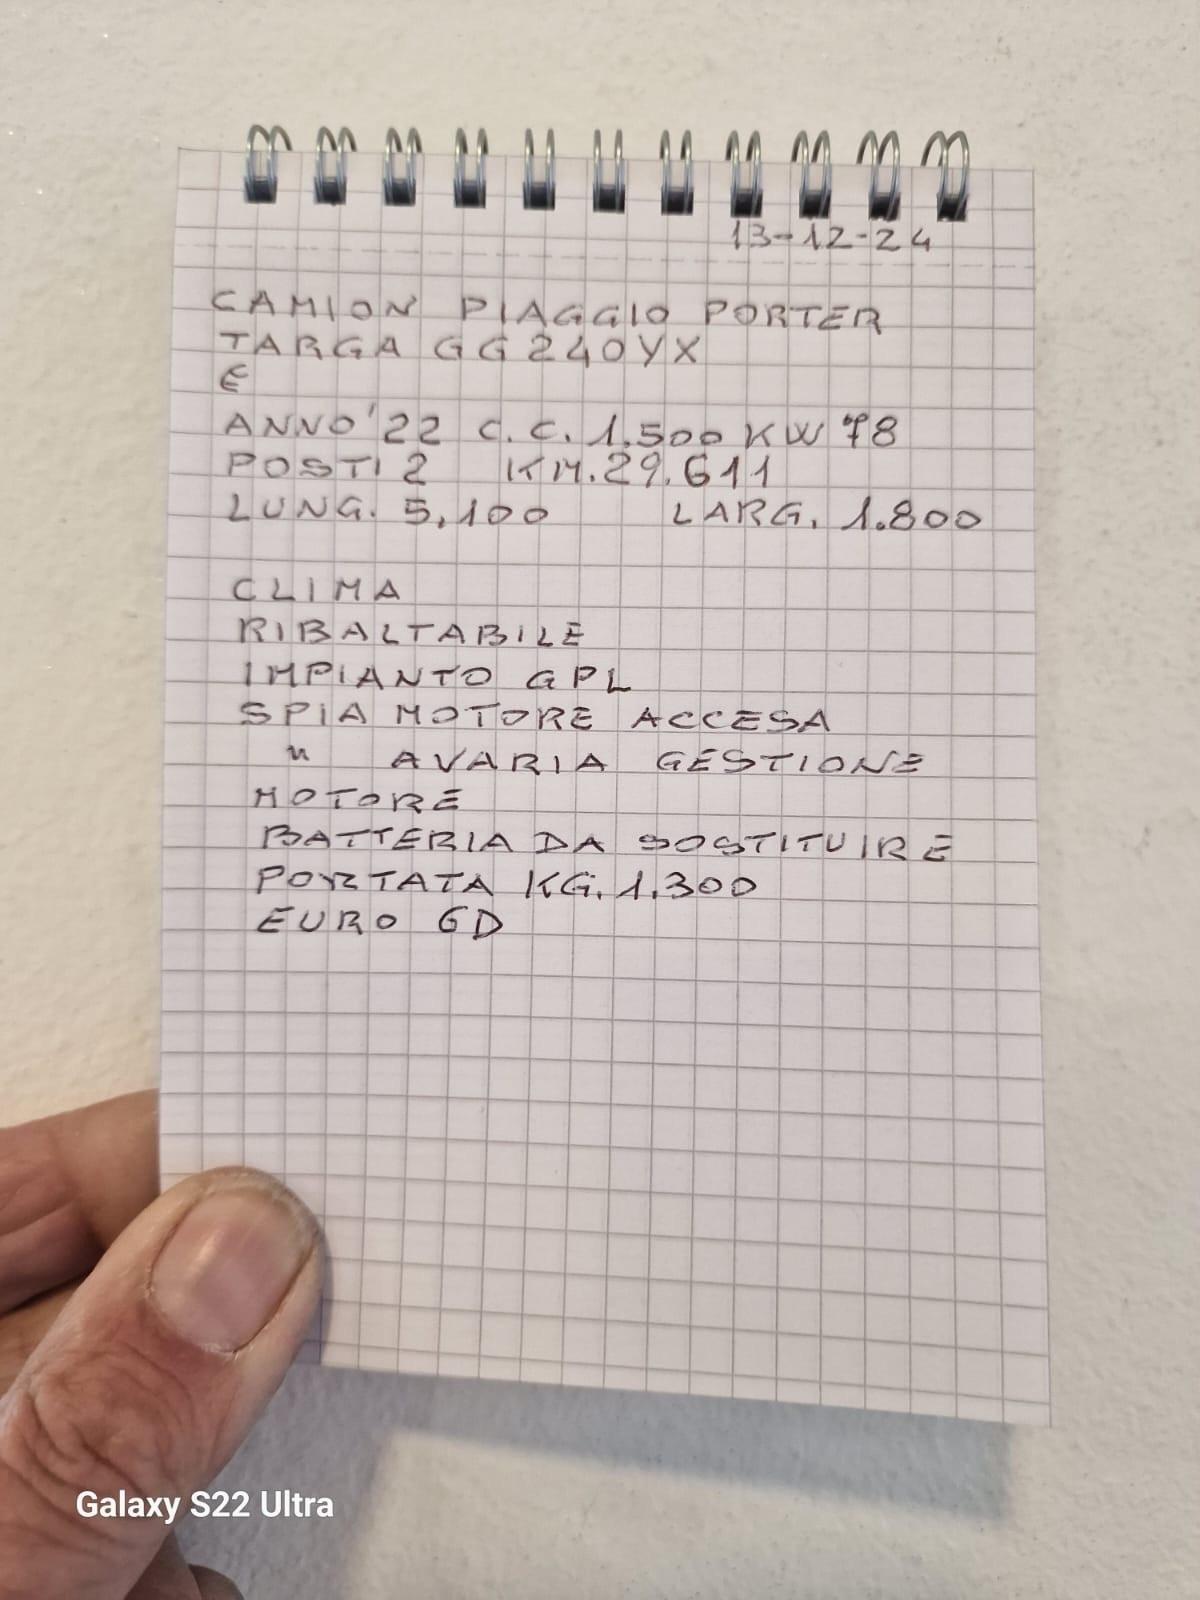 13-12-24
CAMION PIAGGIO PORTER
TARGA GG240YX
€
ANNO '22 C.C. 1.500 KW 78
POSTI 2 KM. 29.611
LUNG. 5,100 LARG. 1.800
CLIMA
RIBALTABILE
IMPIANTO GPL
SPIA MOTORE ACCESA
" AVARIA GESTIONE
MOTORE
BATTERIA DA SOSTITUIRE
PORTATA KG. 1.300
EURO 6D
Galaxy S22 Ultra